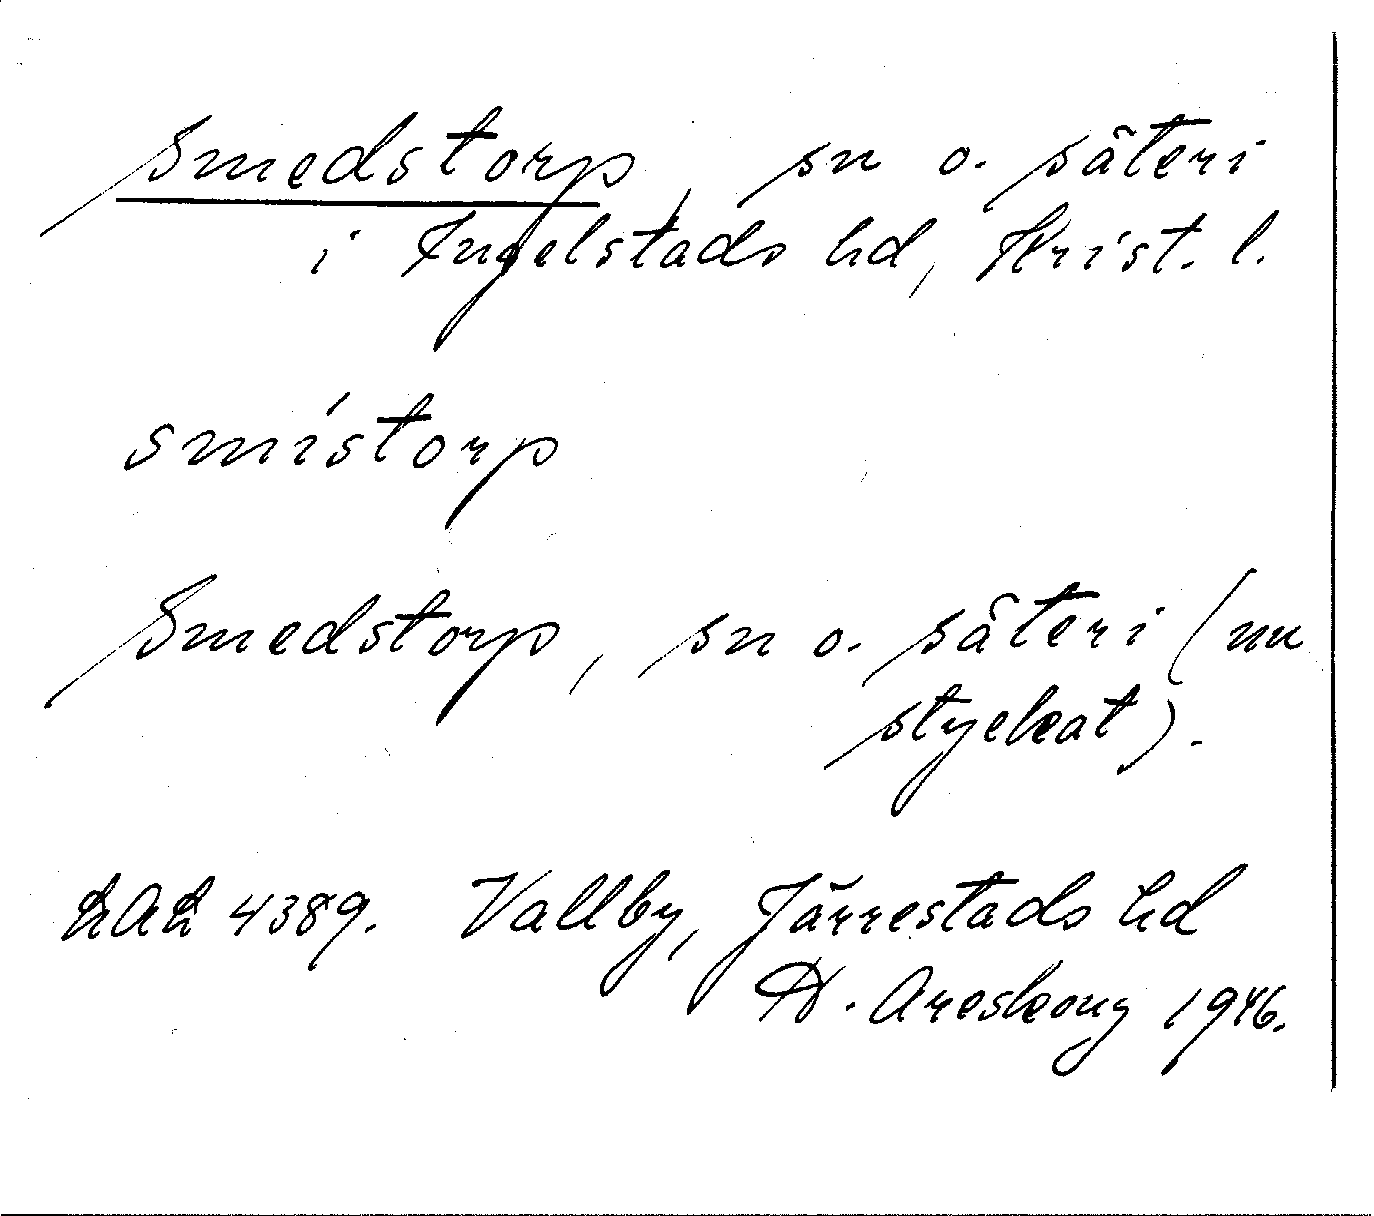 Smedstorp, sn o. säteri
i Ingelstads hd, Krist. l.
smístorp
Smedstorp, sn o. säteri (nu
styckat).
LAL 4389. Vallby, Järrestads hd
D. Areskoug 1946.